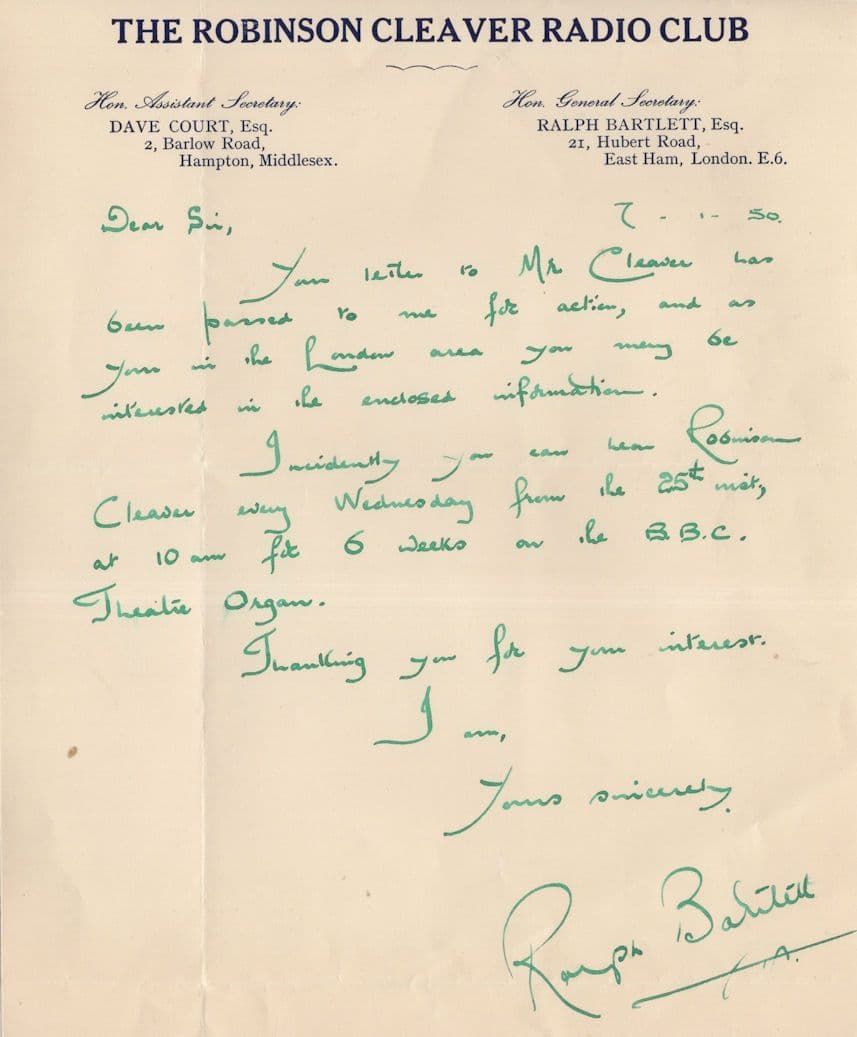 THE ROBINSON CLEAVER RADIO CLUB
Hon. Assistant Secretary:
DAVE COURT, Esq.
2, Barlow Road,
Hampton, Middlesex.
Hon. General Secretary:
RALPH BARTLETT, Esq.
21, Hubert Road,
East Ham, London. E.6.
Dear Sir,
7 - 1 - 50.
Your letter to Mr Cleaver has
been passed to me for action, and as
your in the London area you may be
interested in the enclosed information.
Incidently you can hear Robinson
Cleaver every Wednesday from the 25th inst,
at 10 am for 6 weeks on the B.B.C.
Theatre Organ.
Thanking you for your interest.
I am,
Yours sincerely.
Ralph Bartlett